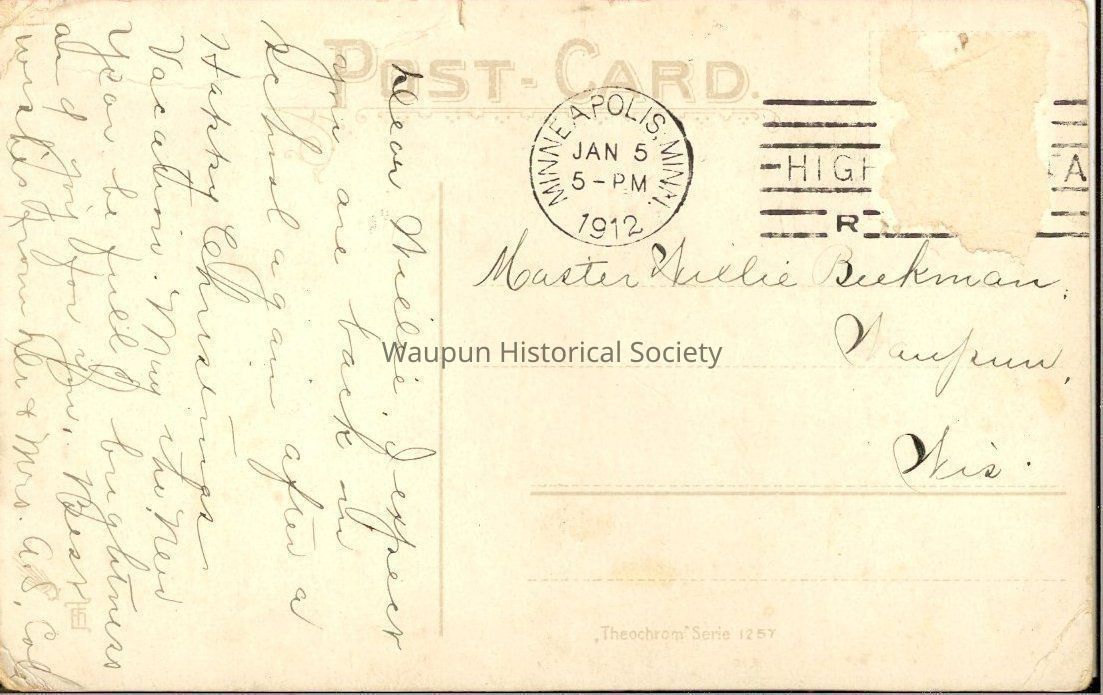 POST-CARD.
MINNEAPOLIS, MINN.
JAN 5
5-PM
1912
HIGH
R
Master Willie Beekman,
Waupun,
Wis.
Dear Willie. I expect
you are back in
School again after a
Happy Christmas
Vacation. May the New
Year be full of brightness
and joy for you. Best
wishes from Mr & Mrs. A. S.
Waupun Historical Society
„Theochrom" Serie 1257